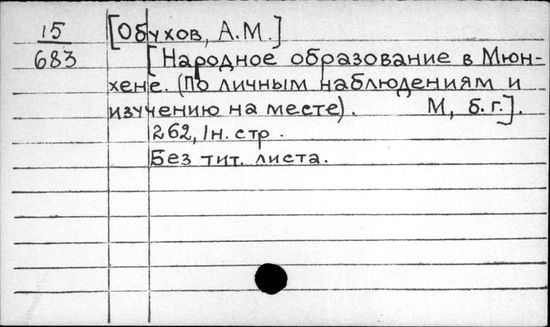 15
683
[Обухов, А.М.]
[Народное образование в Мюн-
хене. (По личным наблюдениям и
изучению на месте). М, б.г.].
262, 1н. стр.
Без тит. листа.